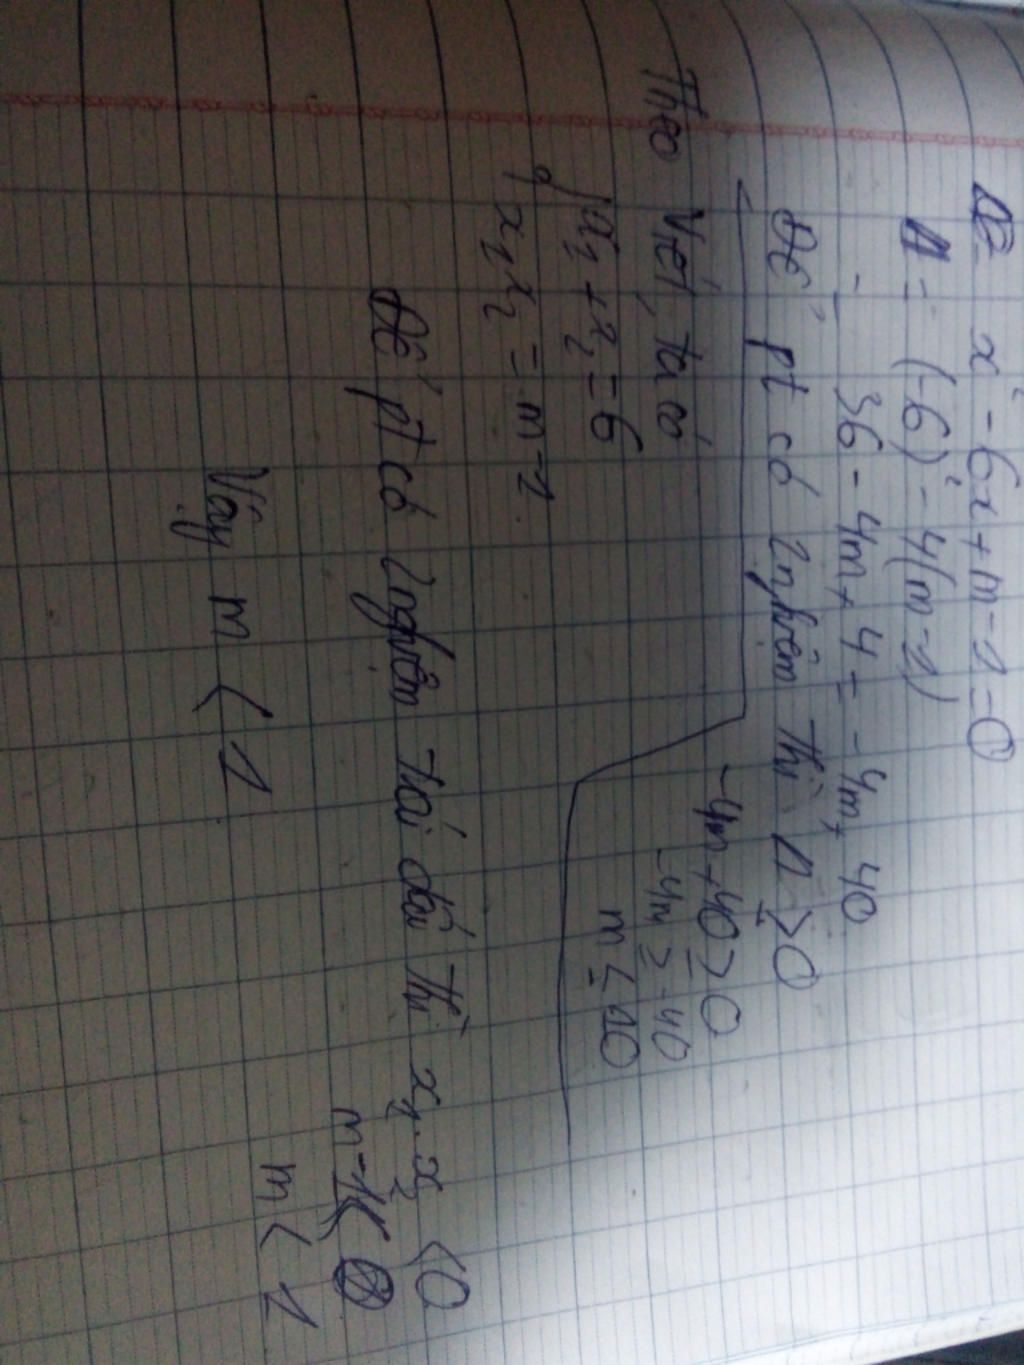 x² - 6x + m - 1 = 0
Δ = (-6)² - 4(m-1)
= 36 - 4m + 4 = -4m + 40
Để pt có 2 nghiệm thì Δ ≥ 0
-4m + 40 ≥ 0
-4m ≥ -40
m ≤ 10
Theo Viét, ta có
x₁ + x₂ = 6
x₁x₂ = m-1
Để pt có 2 nghiệm trái dấu thì x₁.x₂ < 0
m-1 < 0
m < 1
Vậy m < 1